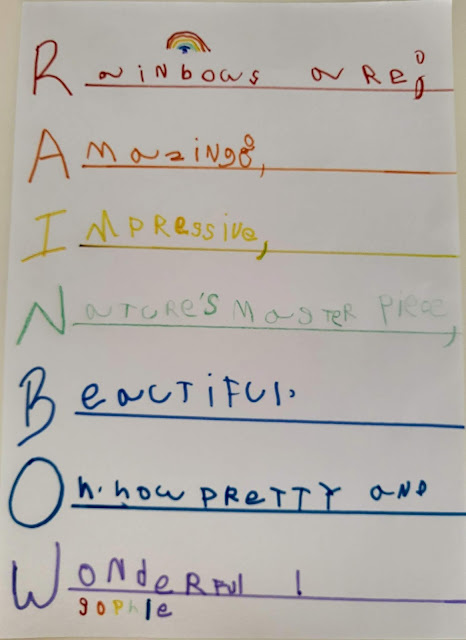 RainbowS aRe:
AmazingS,
ImpRessive,
NatuRe's MasteR Piece,
Beautiful.
Oh. how pRetty and
WondeRful !
sophie